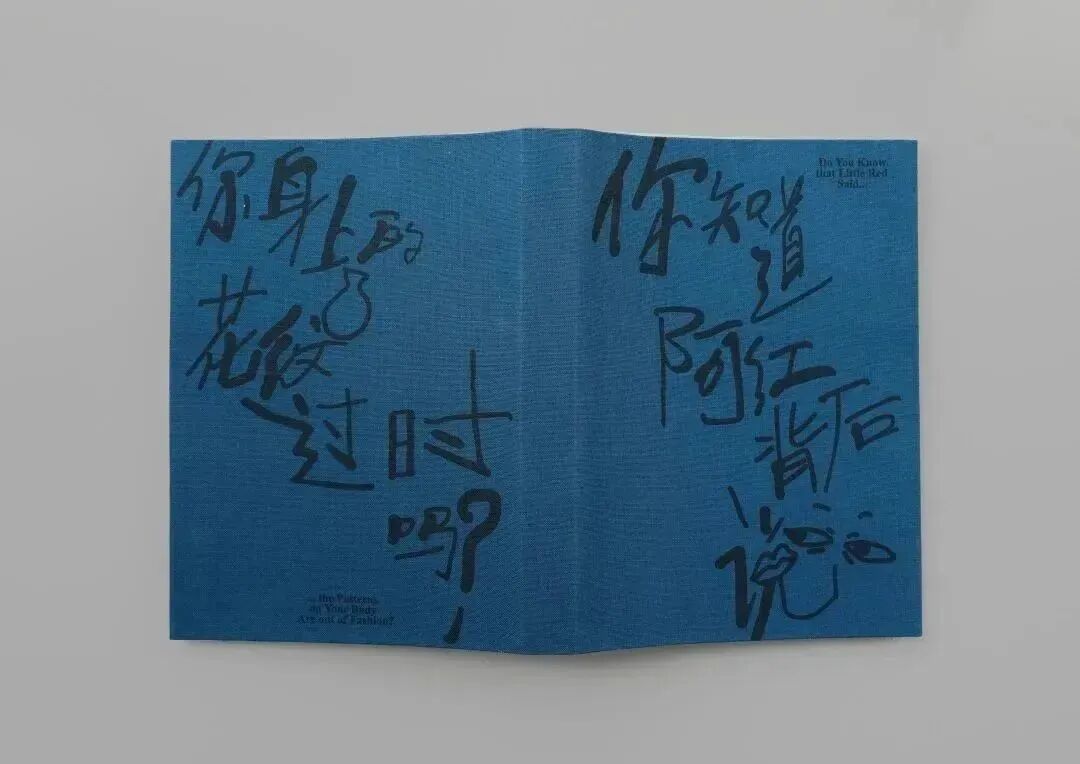 Do You Know
that Little Red
Said...
你知道
阿红
背后
说
你身上的
花纹
过时
吗?
... the Patterns
on Your Body
Are out of Fashion?